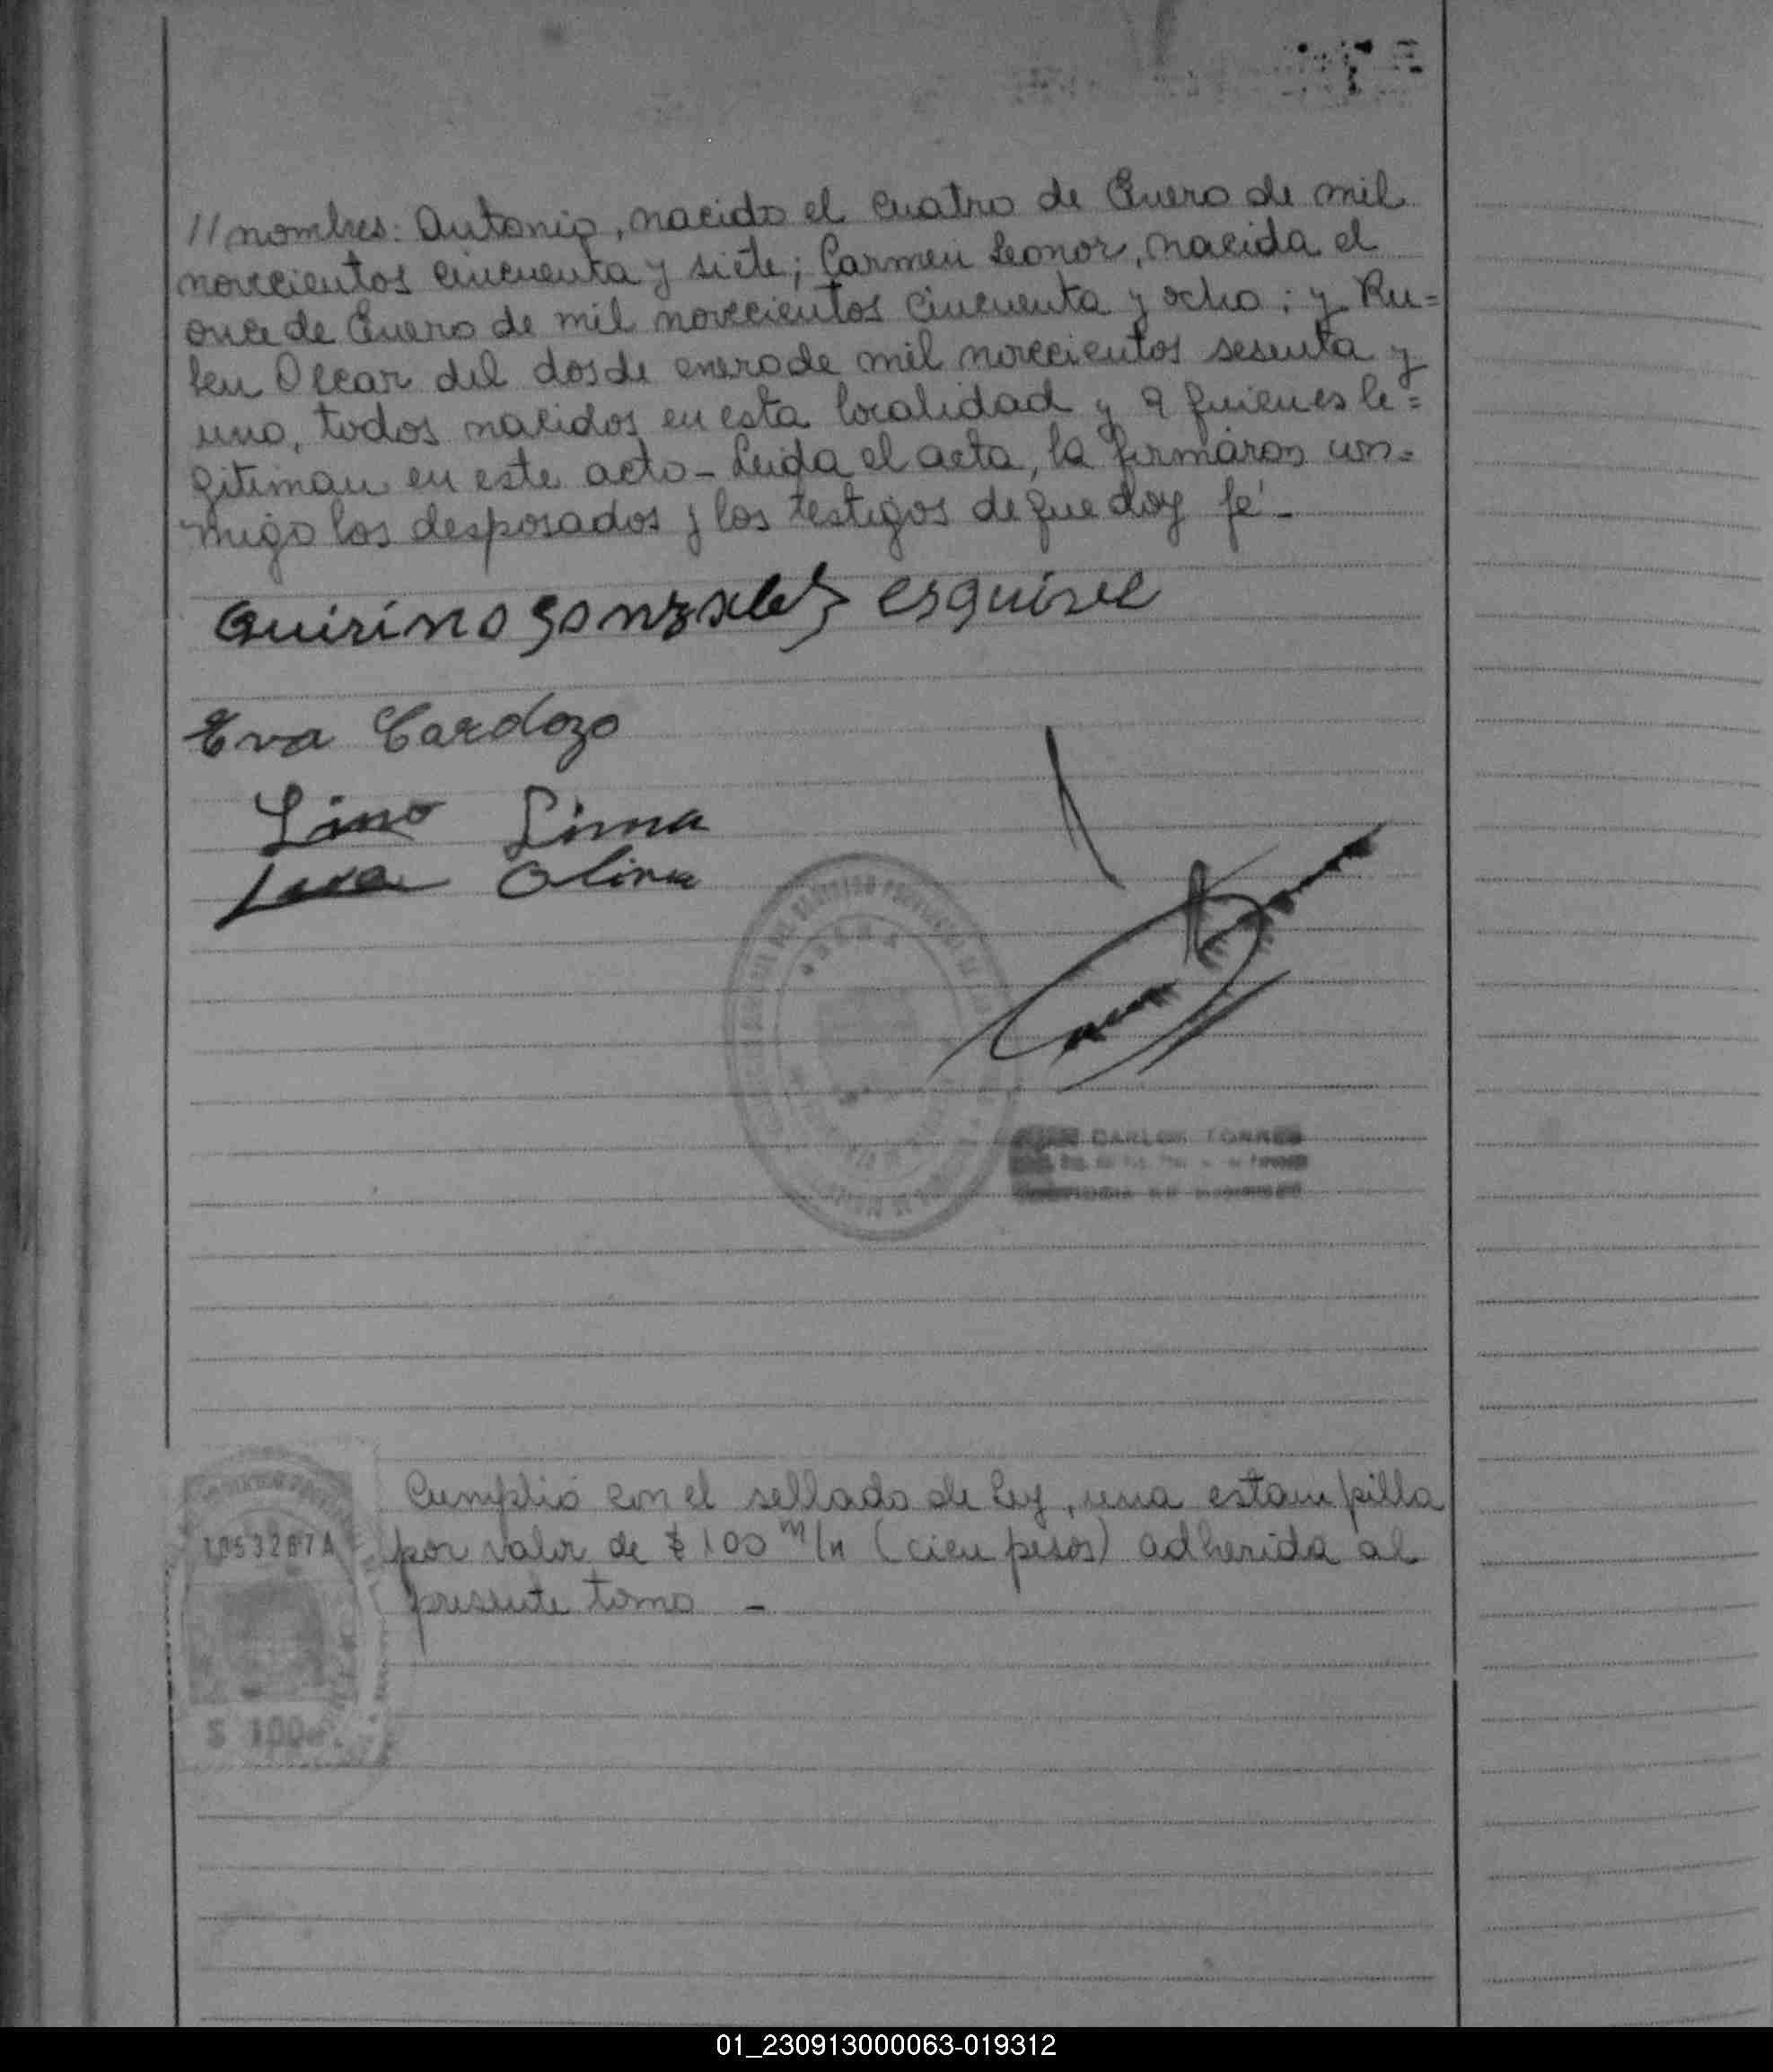 //nombres: Antonio, nacido el cuatro de Enero de mil
novecientos cincuenta y siete; Carmen Leonor, nacida el
once de Enero de mil novecientos cincuenta y ocho; y Ru=
ben Oscar del dos de enero de mil novecientos sesenta y
uno, todos nacidos en esta localidad y a quienes le=
gitiman en este acto - Leida el acta, la firmaron con=
migo los desposados y los testigos de que doy fé -
Quirino Gonzalez esquivel
Eva Cardozo
Lino Lima
Oliva
CARLOS TORRES
Cumplió con el sellado de ley, una estampilla
por valor de $ 100 m/n (cien pesos) adherida al
presente tomo -
1053267A
$ 100
01_230913000063-019312